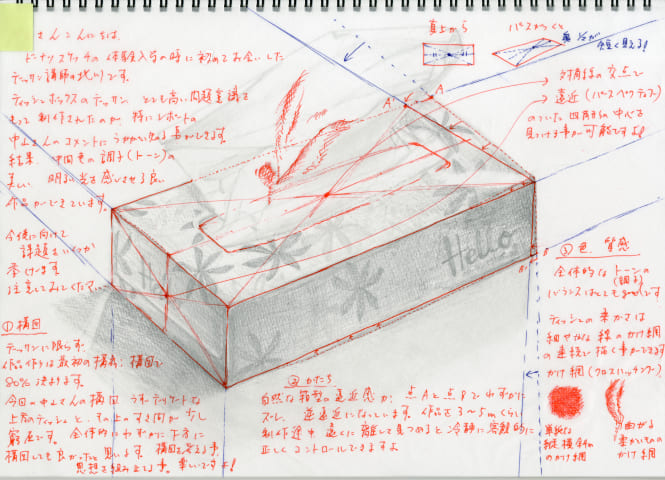 さんこんにちは。
ドーナツスケッチの体験入学の時に初めてお会いした
デッサン講師の です。
ティッシュボックスのデッサン とても高い問題意識を
もって制作されたのが 特にレポートの
中山さんのコメントにうかがい知る事ができます。
結果、中間色の調子(トーン)の
美しい 明るい光を感じさせる良い
作品ができています。
今後に向けて
課題をいくつか
挙げます
注意してみてください。
①構図
デッサンに限らず
作品作りは最初の構想・構図で
80%決まります。
今回の中山さんの構図 うすーいタッチな
上部のティッシュと、その上のすき間が少し
窮屈です。全体的にわずかに下方に
構図しても良かったと思います。構図を考える事、
思想を組み立てる事。楽しいですよ!
真上から
パースがつくと
短く見える!
対角線の交点で
遠近(パースペクティブ)
のついた四角形の中心を
見つける事が可能ですよ!
A'
A
Hello
B
B'
②かたち
自然な箱型の遠近感が、点Aと点Bでわずかに
ズレ、逆遠近になっています。作品を3〜5mくらい
制作途中 遠くに離して見つめると冷静に客観的に
正しくコントロールできますよ
③色、質感
全体的なトーンの
(調子)
バランスはとてもgoodです
ティッシュの柔かさは
細やかな線のかけ網
の連続で描く事ができます
かけ網(クロスハッチング)
単純な
縦横斜め
のかけ網
曲がる
柔かいもの
かけ網